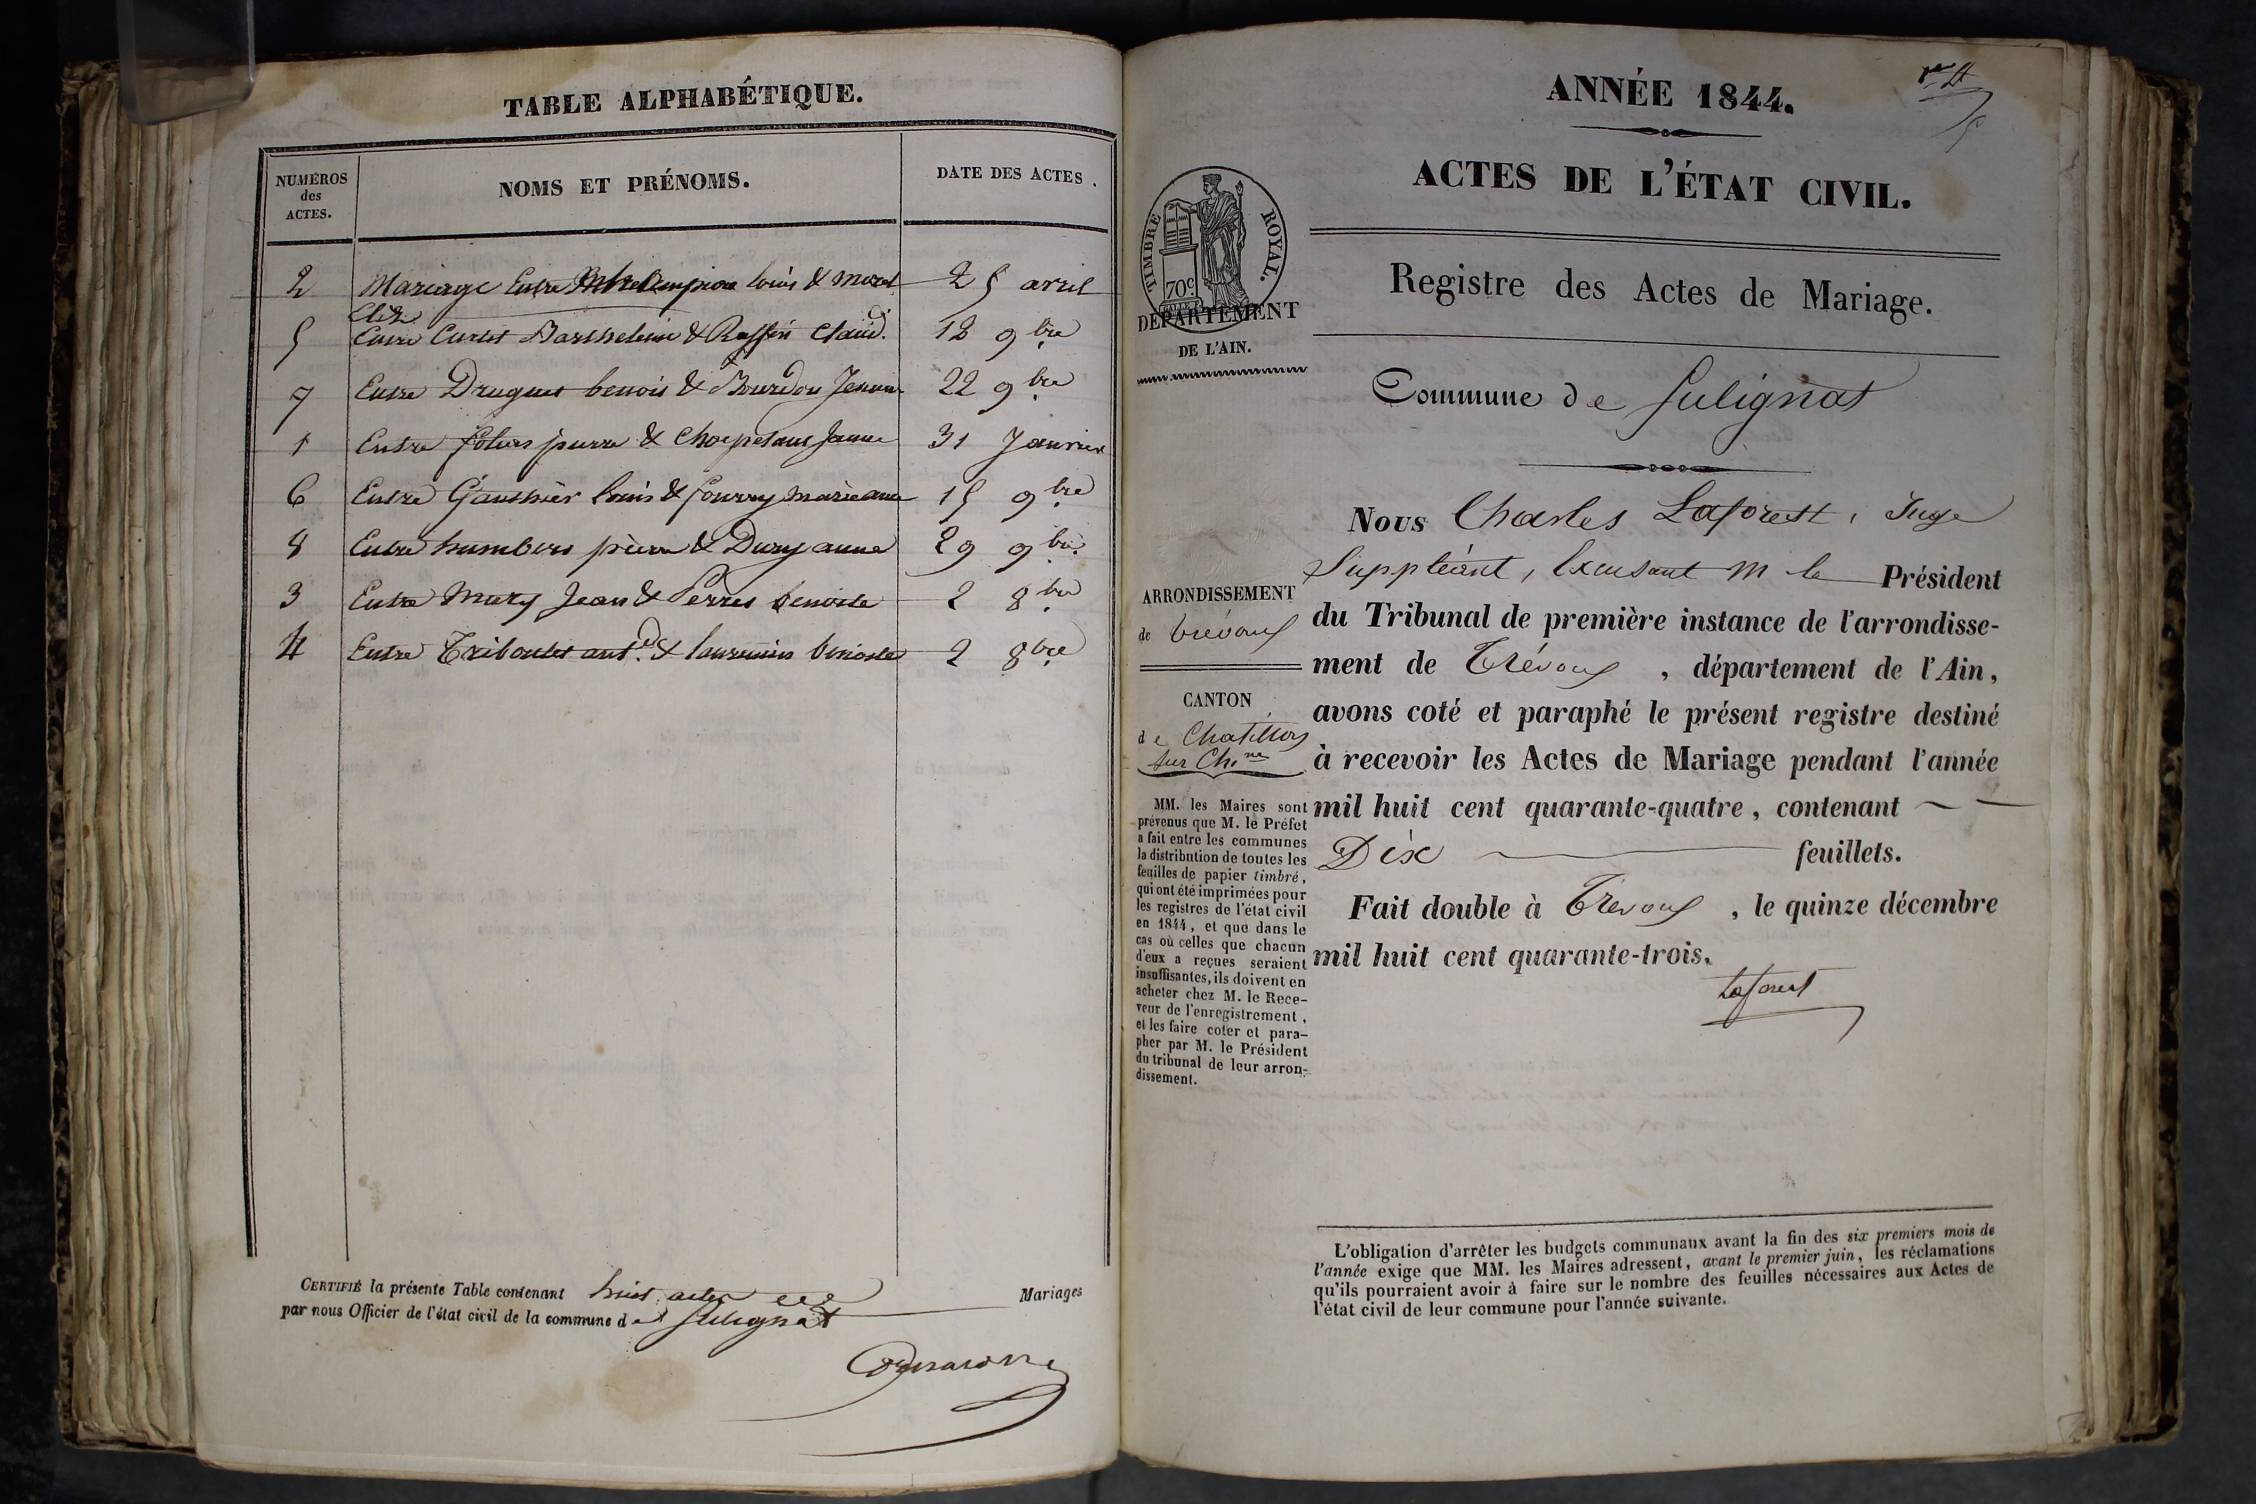 TABLE ALPHABÉTIQUE.
NUMÉROS des ACTES.
NOMS ET PRÉNOMS.
DATE DES ACTES.
2 Mariage Entre louis & morel 25 avril
5 Entre Curtet Barthelemi & Raffin Claud. 18 9bre
7 Entre Druguet benoit & Bourdon Jeanne 22 9bre
1 Entre pierre & Janne 31 Janvier
6 Entre Gauthier louis & marieanne 15 9bre
8 Entre humbert pierre & Dury anne 29 9bre
3 Entre Mury Jean & Perret benoite 2 8bre
4 Entre Triboulet ant. & benoite 2 8bre
CERTIFIÉ la présente Table contenant huit actes Mariages
par nous Officier de l'état civil de la commune de Sulignat
ANNÉE 1844.
ACTES DE L'ÉTAT CIVIL.
TIMBRE ROYAL.
70c
DÉPARTEMENT
DE L'AIN.
Registre des Actes de Mariage.
Commune de Sulignat
ARRONDISSEMENT
de trévoux
CANTON
de Chatillon
sur Ch.ne
MM. les Maires sont
prévenus que M. le Préfet
a fait entre les communes
la distribution de toutes les
feuilles de papier timbré,
qui ont été imprimées pour
les registres de l'état civil
en 1844, et que dans le
cas où celles que chacun
d'eux a reçues seraient
insuffisantes, ils doivent en
acheter chez M. le Rece-
veur de l'enregistrement,
et les faire coter et para-
pher par M. le Président
du tribunal de leur arron-
dissement.
Nous Charles Laforest, Juge
Suppléant, Excusant M le Président
du Tribunal de première instance de l'arrondisse-
ment de Trévoux, département de l'Ain,
avons coté et paraphé le présent registre destiné
à recevoir les Actes de Mariage pendant l'année
mil huit cent quarante-quatre, contenant
Dix feuillets.
Fait double à Trévoux, le quinze décembre
mil huit cent quarante-trois.
Laforest
L'obligation d'arrêter les budgets communaux avant la fin des six premiers mois de
l'année exige que MM. les Maires adressent, avant le premier juin, les réclamations
qu'ils pourraient avoir à faire sur le nombre des feuilles nécessaires aux Actes de
l'état civil de leur commune pour l'année suivante.